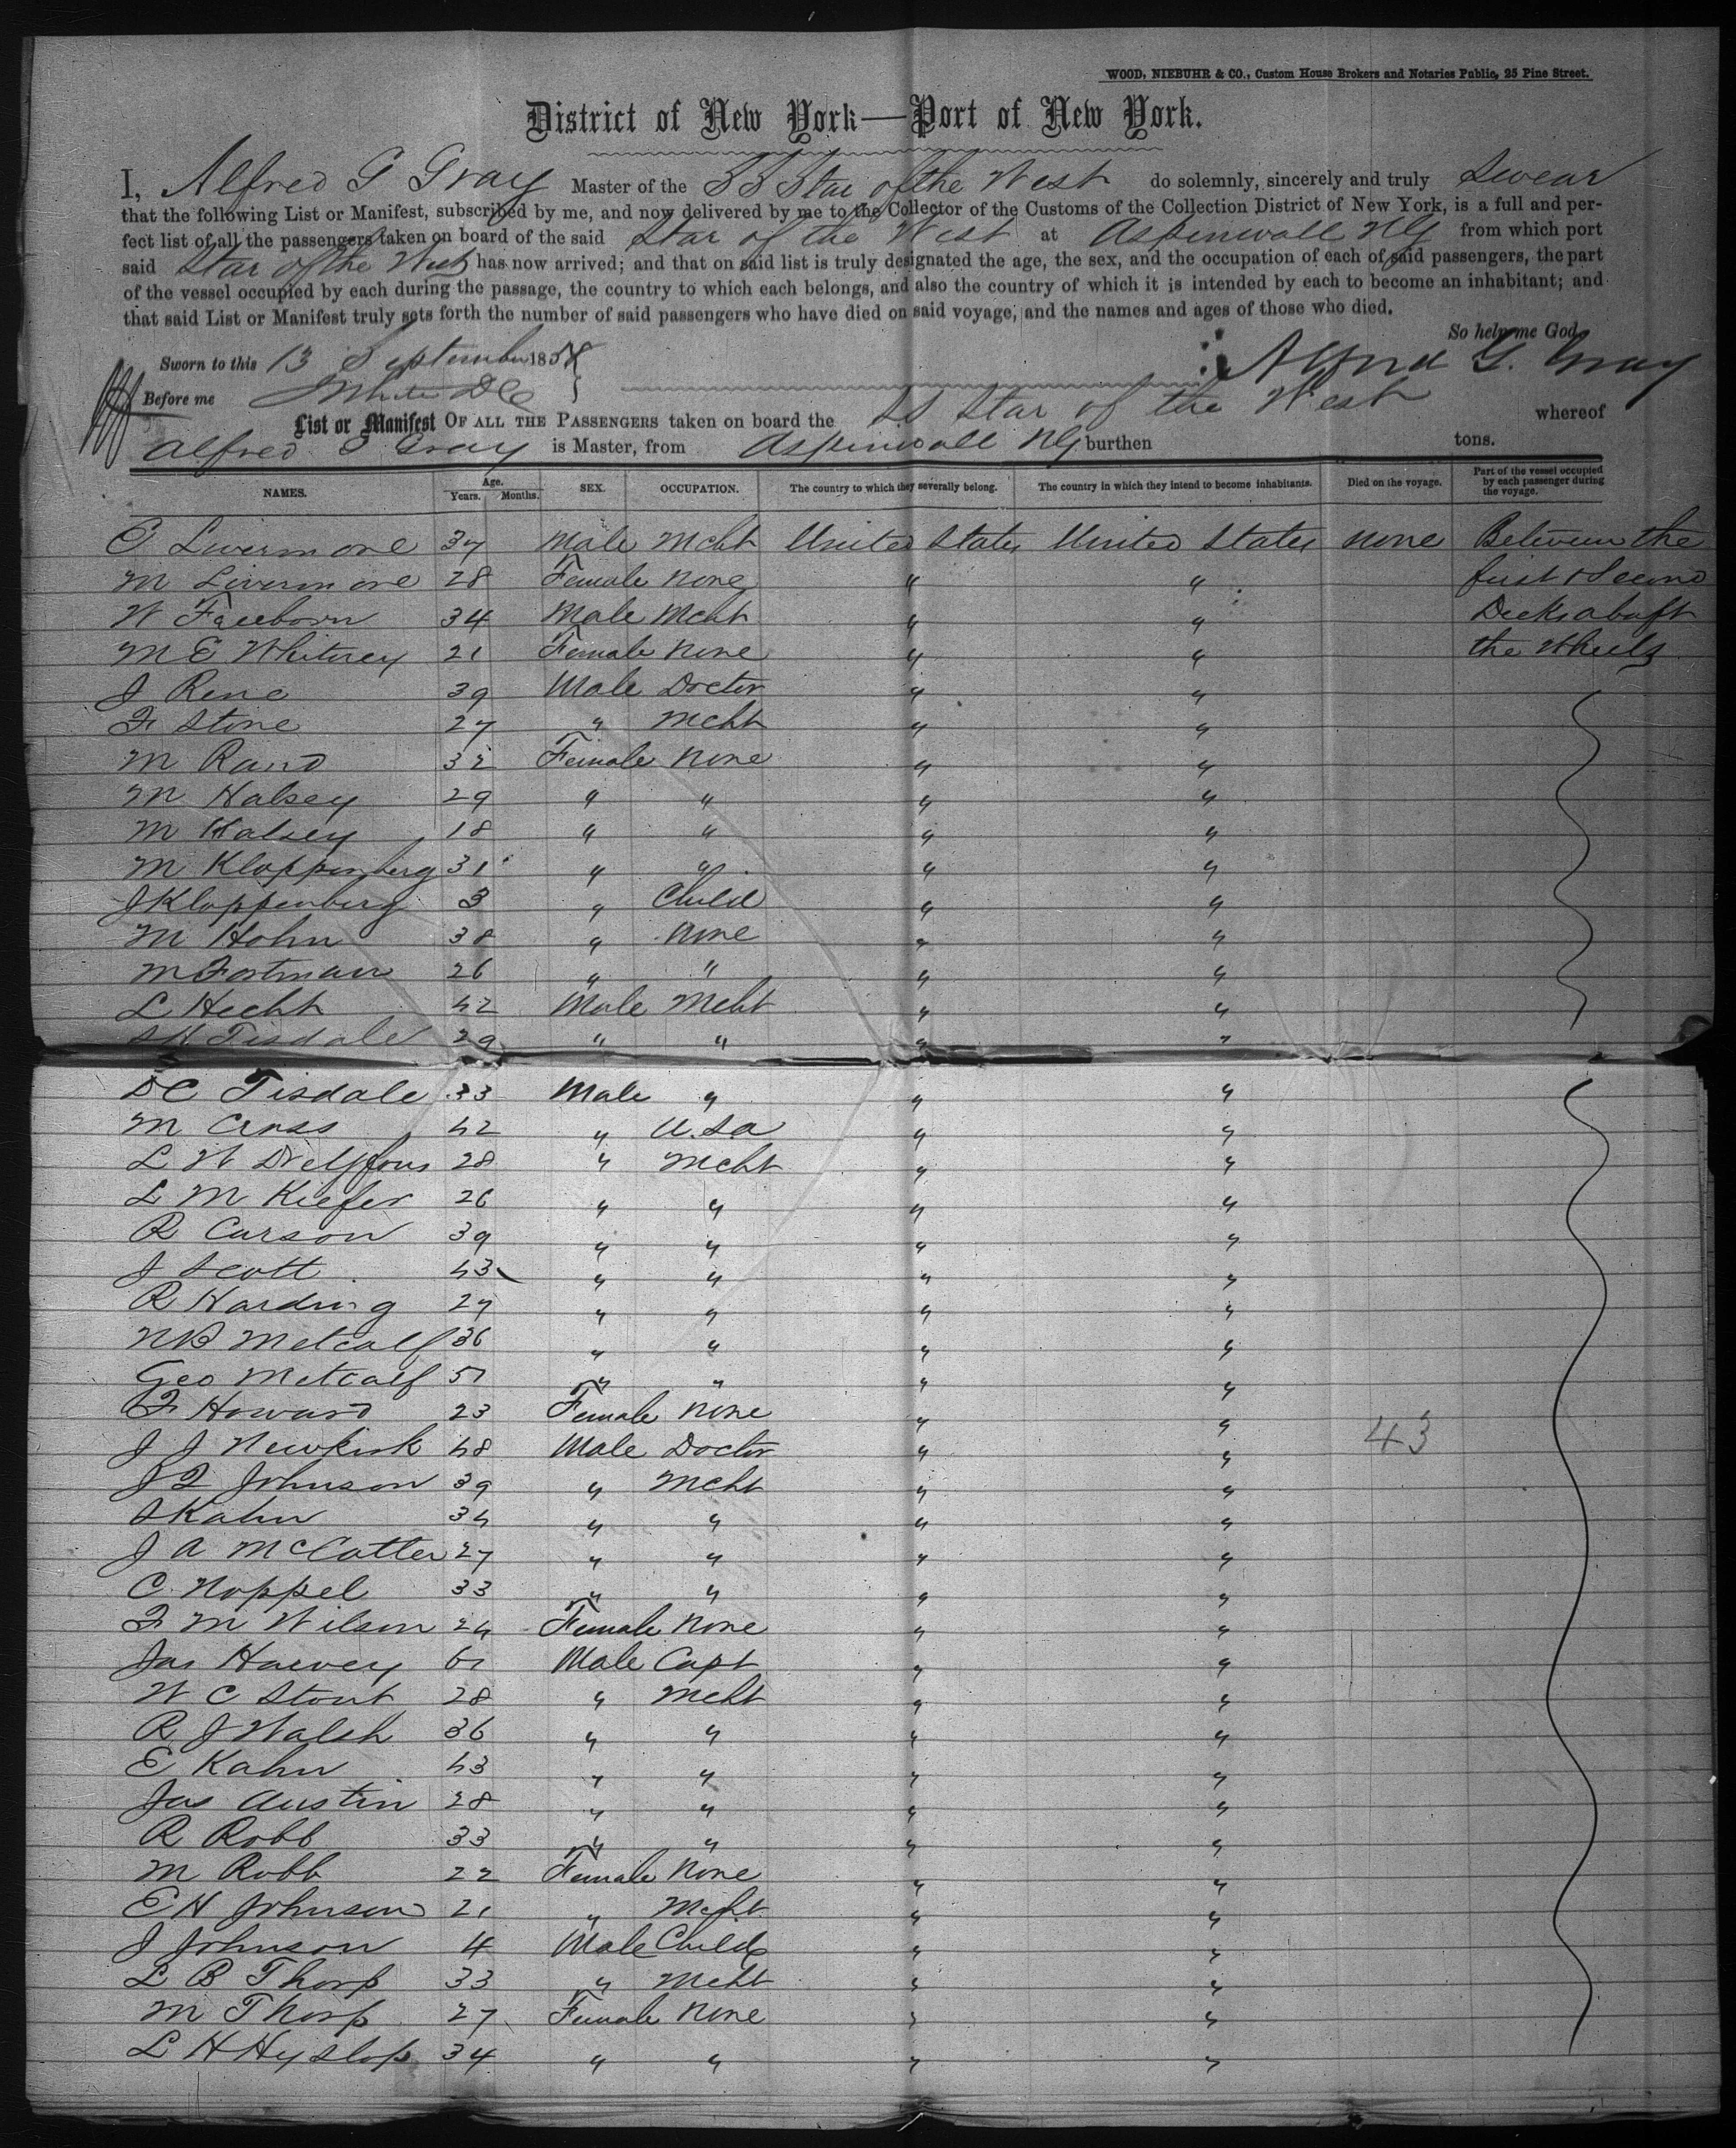 WOOD, NIEBUHR & CO., Custom House Brokers and Notaries Public, 25 Pine Street.
District of New York—Port of New York.
I, Alfred G Gray Master of the SS Star of the West do solemnly, sincerely and truly Swear
that the following List or Manifest, subscribed by me, and now delivered by me to the Collector of the Customs of the Collection District of New York, is a full and per-
fect list of all the passengers taken on board of the said Star of the West at Aspinwall NG from which port
said Star of the West has now arrived; and that on said list is truly designated the age, the sex, and the occupation of each of said passengers, the part
of the vessel occupied by each during the passage, the country to which each belongs, and also the country of which it is intended by each to become an inhabitant; and
that said List or Manifest truly sets forth the number of said passengers who have died on said voyage, and the names and ages of those who died.
So help me God.
Sworn to this 13 September 1858 Alfred G. Gray
Before me
List or Manifest OF ALL THE PASSENGERS taken on board the SS Star of the West whereof
Alfred G Gray is Master, from Aspinwall NG burthen tons.
NAMES. Age. Years. Months. SEX. OCCUPATION. The country to which they severally belong. The country in which they intend to become inhabitants. Died on the voyage. Part of the vessel occupied by each passenger during the voyage.
C Livermore 37 Male Mcht United States United States none Between the
M Livermore 28 Female none " " first & Second
W Freeborn 34 Male Mcht " " Decks abaft
M E Whitney 21 Female none " " the Wheels
J Rene 39 Male Doctor " "
F Stone 27 " Mcht " "
M Rand 32 Female none " "
M Halsey 29 " " " "
M Halsey 18 " " " "
M Kloppenberg 31 " " " "
J Kloppenberg 3 " Child " "
M Hohn 38 " none " "
M Fortman 26 " " " "
L Hecht 42 Male Mcht " "
S H Tisdale 29 " " " "
D C Tisdale 33 Male " " "
M Cross 42 " U.S.a " "
L W 28 " Mcht " "
L M Kiefer 26 " " " "
R Carson 39 " " " "
J Scott 43 " " " "
R Harding 27 " " " "
N B Metcalf 36 " " " "
Geo Metcalf 51 " " " "
F Howard 23 Female none " "
J J Newkirk 48 Male Doctor " " 43
J Q Johnson 39 " Mcht " "
S Kahn 34 " " " "
J A McCatter 27 " " " "
C Noppel 33 " " " "
F M Wilson 24 Female none " "
Jas Harvey 61 Male Capt " "
W C Stout 28 " Mcht " "
R J Walsh 36 " " " "
E Kahn 43 " " " "
Jas Austin 28 " " " "
R Robb 33 " " " "
M Robb 22 Female none " "
E H Johnson 21 " Mcht " "
J Johnson 4 Male Child " "
L B Thorp 33 " Mcht " "
M Thorp 27 Female none " "
L H Hyslop 34 " " " "